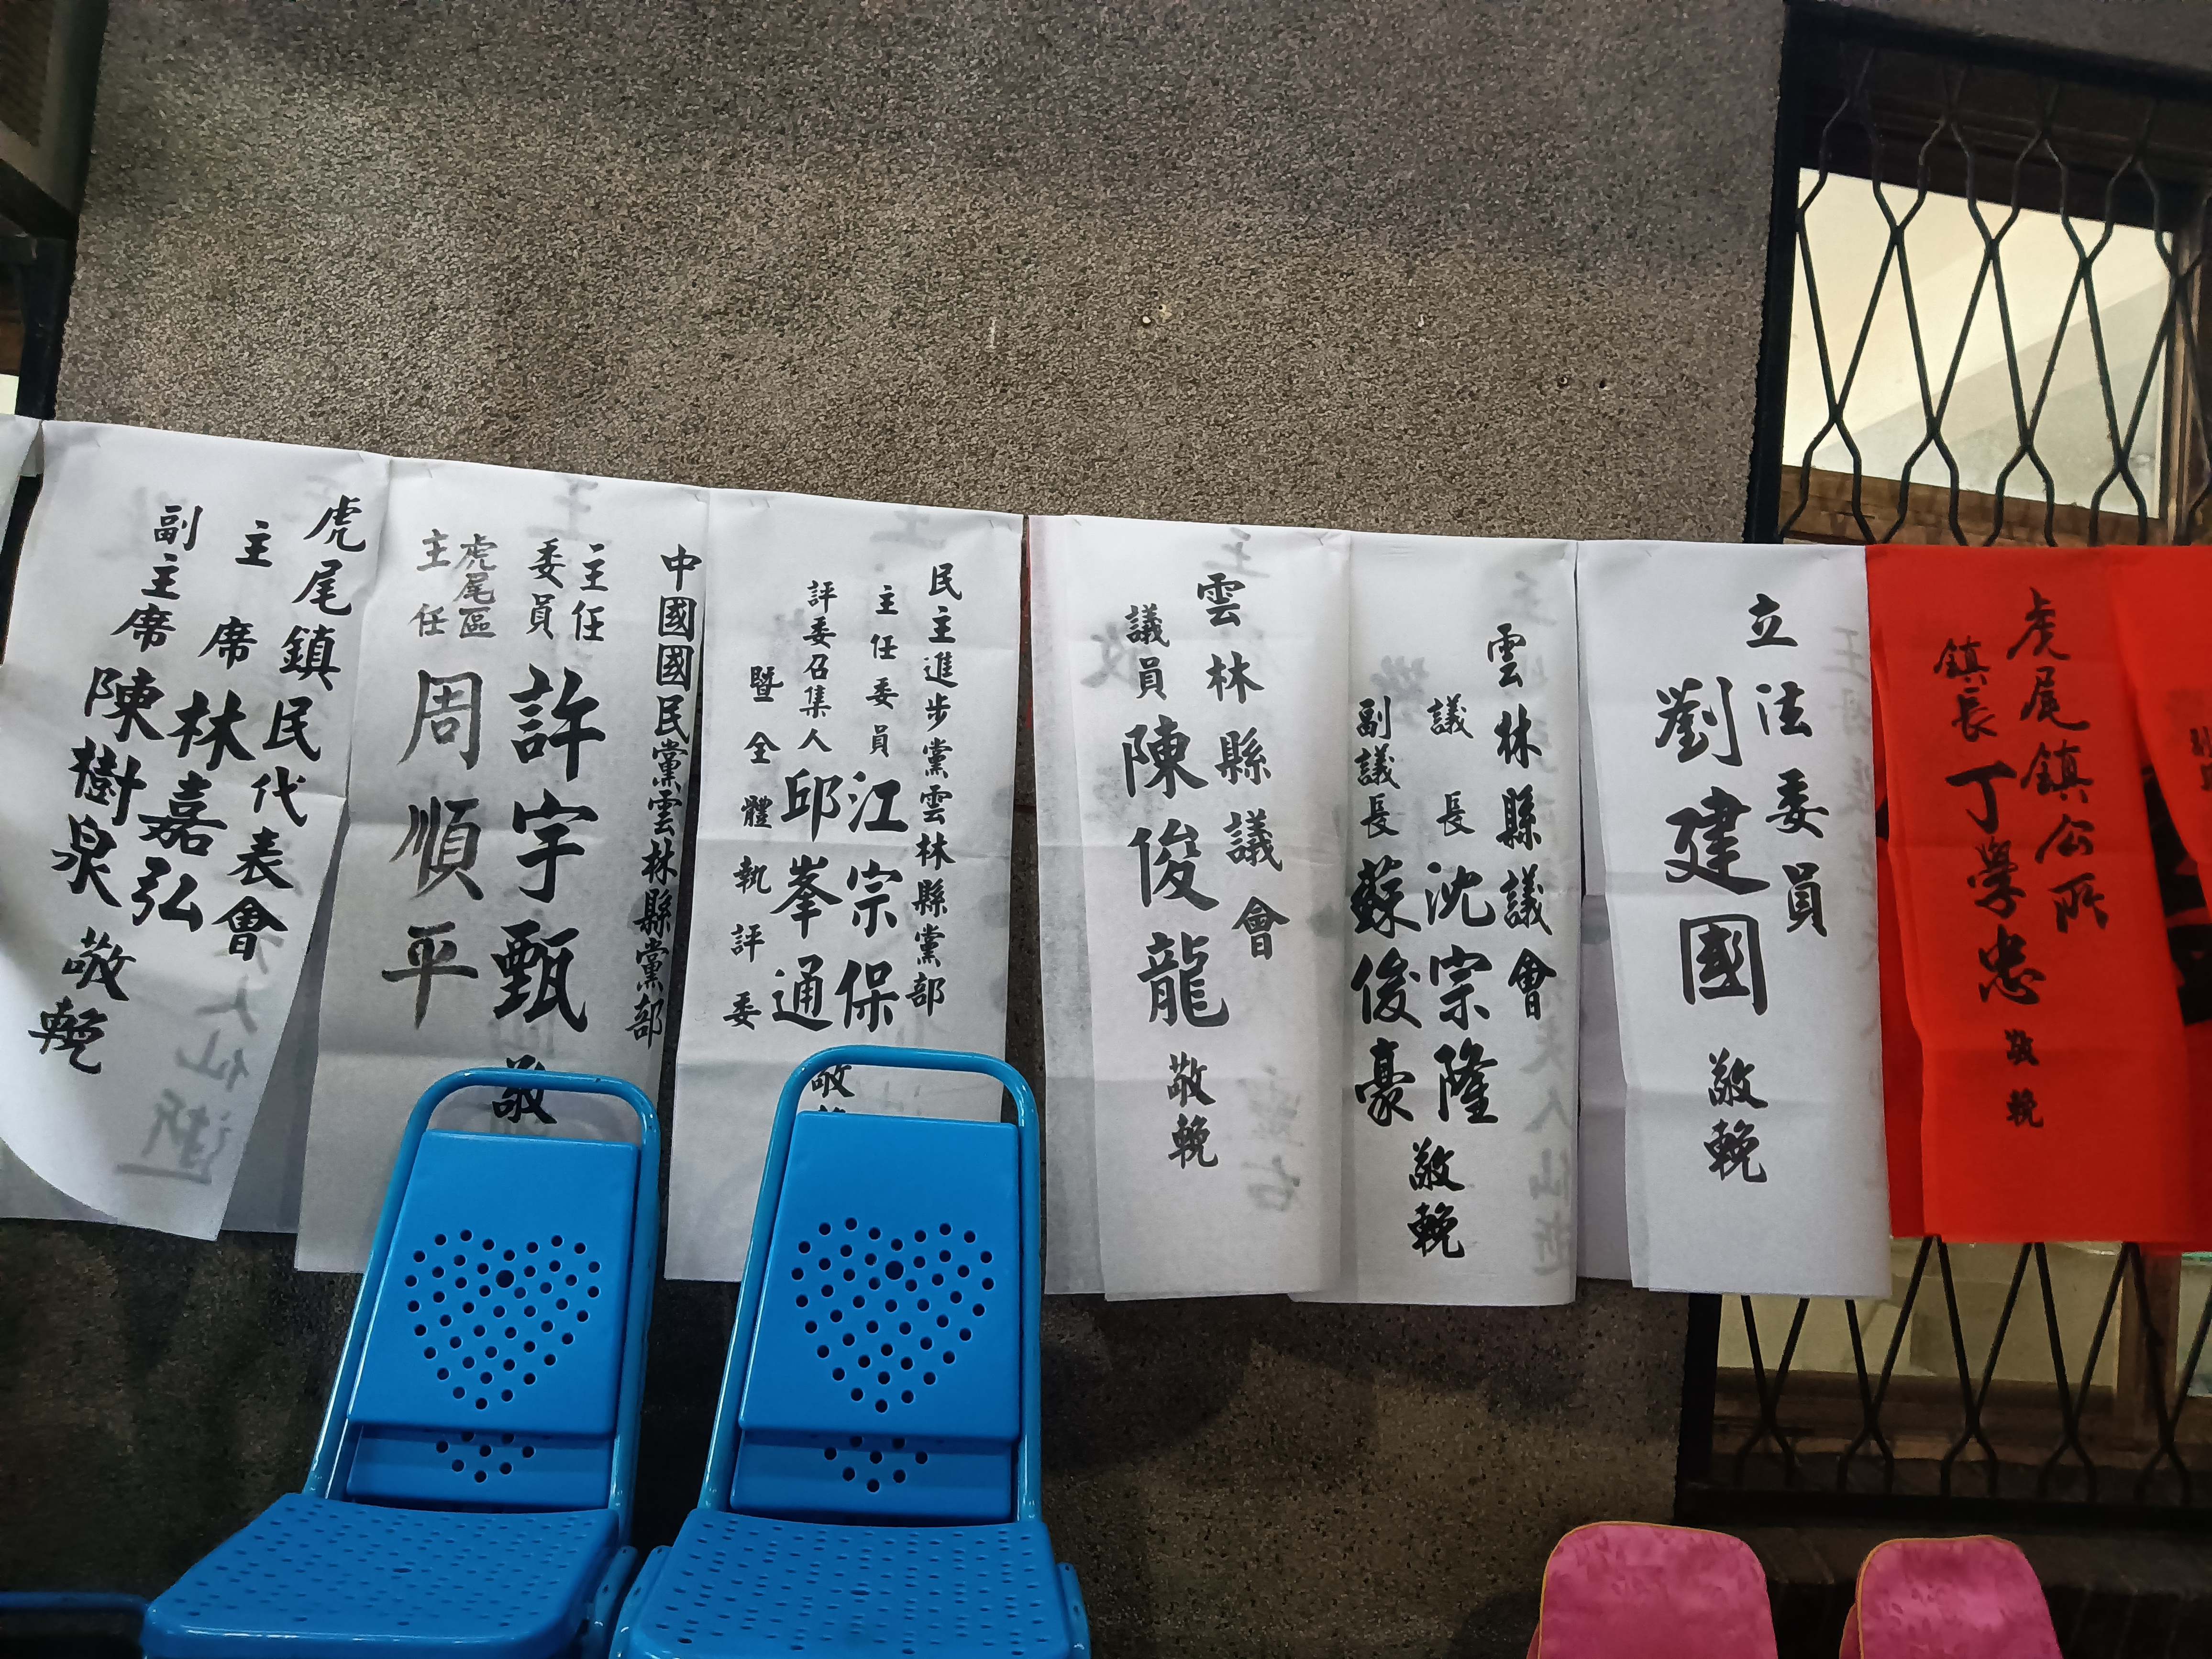 虎尾鎮公所
鎮長 丁學忠 敬輓
立法委員
劉建國 敬輓
雲林縣議會
議長 沈宗隆
副議長 蘇俊豪
敬輓
雲林縣議會
議員 陳俊龍 敬輓
民主進步黨雲林縣黨部
主任委員 江宗保
評委召集人 邱峯通
暨全體執評委
敬
中國國民黨雲林縣黨部
主任
委員
許宇甄
虎尾區
主任
周順平
敬
虎尾鎮民代表會
主席 林嘉弘
副主席 陳樹泉
敬輓